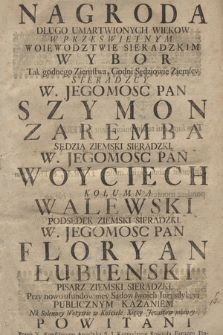 NAGRODA
DŁUGO UMARTWIONYCH WIEKOW
W PRZESWIETNYM
WOIEWODZTWIE SIERADZKIM
WYBOR
Tak godnego Ziemstwa, Godni Sędziowie Ziemscy
SIERADZCY
W. JEGOMOSC PAN
SZYMON
ZAREMBA
SĘDZIA ZIEMSKI SIERADZKI,
W. JEGOMOSC PAN
WOYCIECH
KOLUMNA
WALEWSKI
PODSĘDEK ZIEMSKI SIERADZKI,
W. JEGOMOSC PAN
FLORYAN
ŁUBIENSKI
PISARZ ZIEMSKI SIERADZKI,
Przy nowo ufundowaney Sądow swoich Jurysdykcyi
PUBLICZNYM KAZANIEM
Na Solenney Wotywie w Kościele
POWITANI